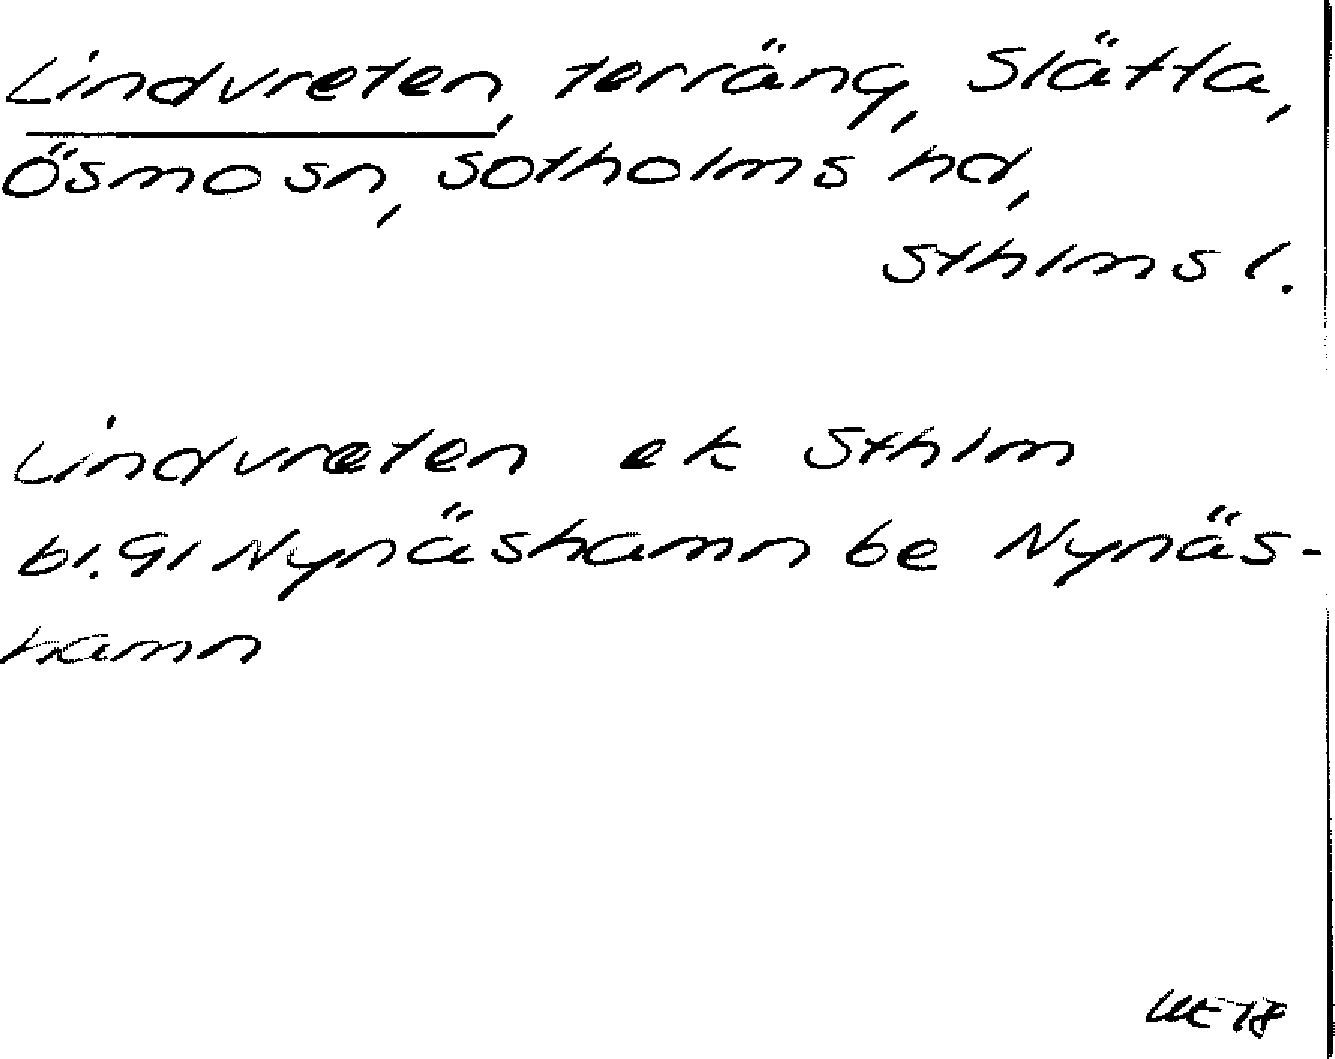 Lindvreten, terräng, Slätta,
Ösmo sn, Sotholms hd,
Sthlms l.
Lindvreten ek Sthlm
bl. 9I Nynäshamn be Nynäs-
hamn